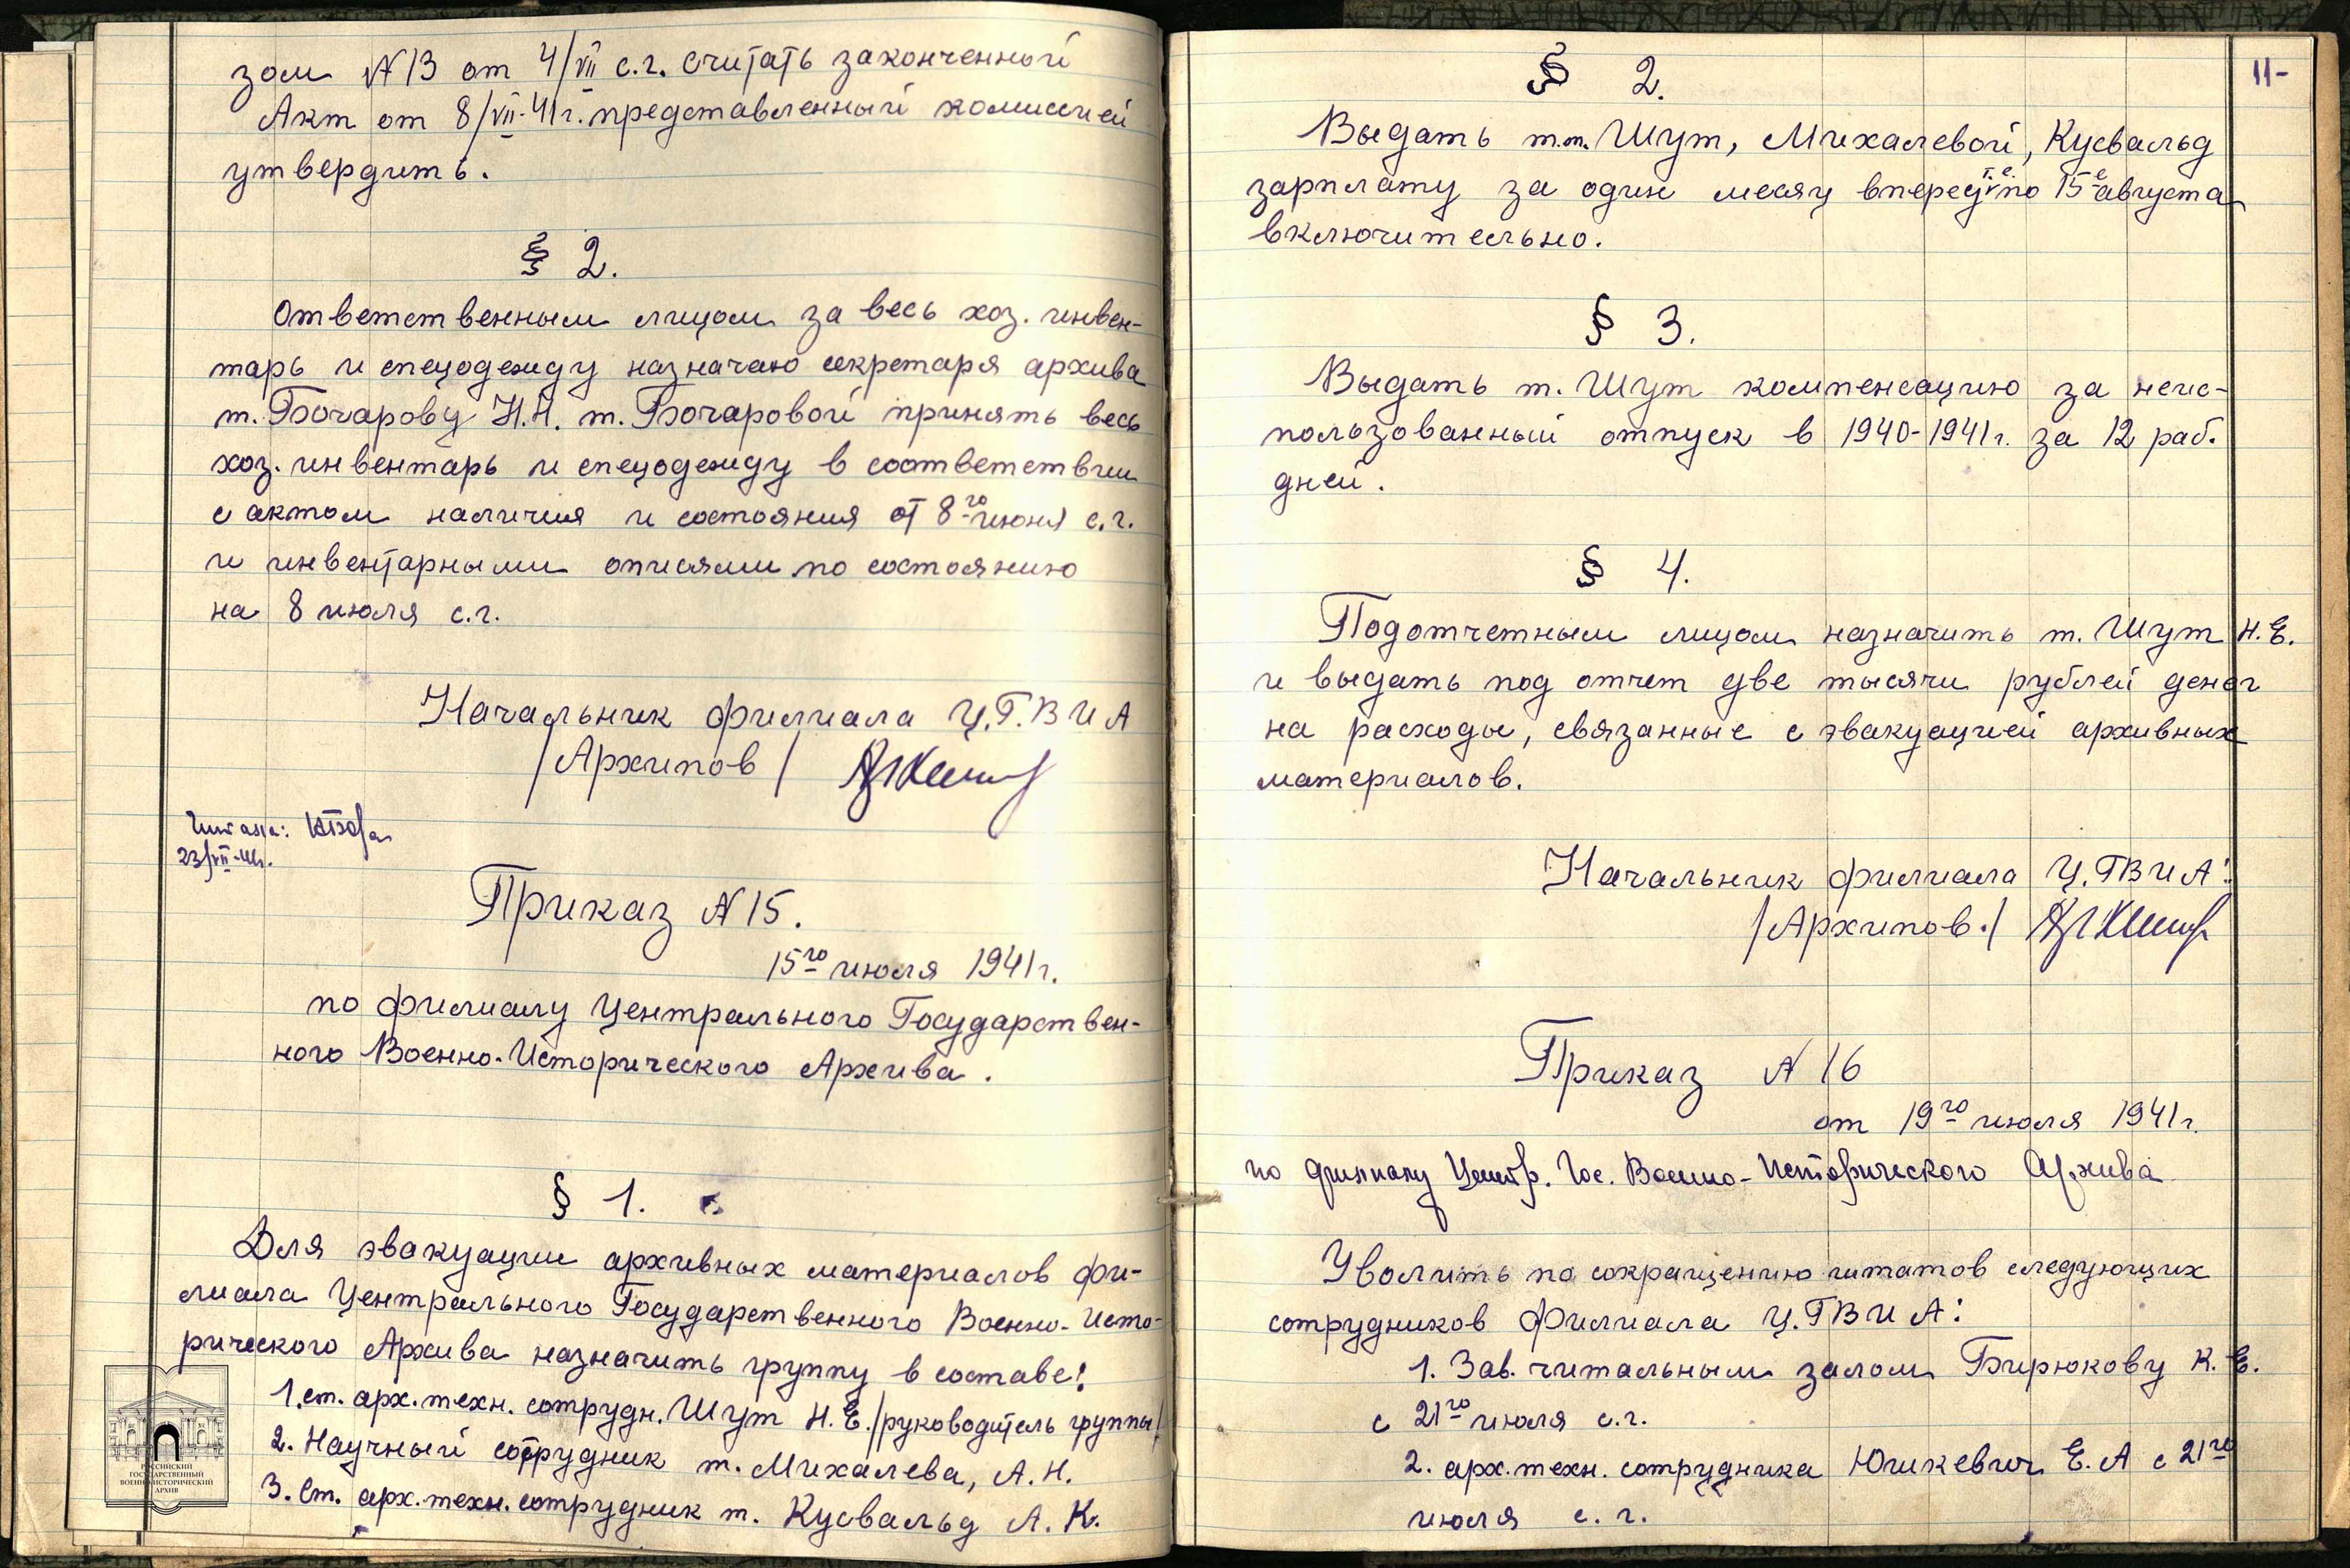 зом № 13 от 4/VII с.г. считать законченной
Акт от 8/VII-41г. представленный комиссией
утвердить.
§ 2.
Ответственным лицом за весь хоз. инвен-
тарь и спецодежду назначаю секретаря архива
т. Бочарову Н.Н. т. Бочаровой принять весь
хоз. инвентарь и спецодежду в соответствии
с актом наличия и состояния от 8го июня с.г.
и инвентарными описями по состоянию
на 8 июля с.г.
Начальник филиала Ц.Г.В И А
/Архипов/
Читала:
23/VII-41г.
Приказ № 15.
15го июля 1941г.
по филиалу Центрального Государствен-
ного Военно-Исторического Архива.
§ 1.
Для эвакуации архивных материалов фи-
лиала Центрального Государственного Военно-Исто-
рического Архива назначить группу в составе:
1. ст. арх. техн. сотрудн. Шут Н. Е. /руководитель группы/
2. Научный сотрудник т. Михалева, А. Н.
3. Ст. арх. техн. сотрудник т. Кусвальд А. К.
РОССИЙСКИЙ
ГОСУДАРСТВЕННЫЙ
ВОЕННО-ИСТОРИЧЕСКИЙ
АРХИВ
11-
§ 2.
Выдать т.т. Шут, Михалевой, Кусвальд
зарплату за один месяц вперед т.е. по 15е августа
включительно.
§ 3.
Выдать т. Шут компенсацию за неис-
пользованный отпуск в 1940-1941г. за 12 раб.
дней.
§ 4.
Подотчетным лицом назначить т. Шут Н. Е.
и выдать под отчет две тысячи рублей денег
на расходы, связанные с эвакуацией архивных
материалов.
Начальник филиала Ц.ГВ И А:
/Архипов./
Приказ № 16
от 19го июля 1941г.
по филиалу Центр. Гос. Военно-Исторического Архива
Уволить по сокращению штатов следующих
сотрудников Филиала Ц.ГВ И А:
1. Зав. читальным залом Бирюкову К. Е.
с 21го июля с.г.
2. арх. техн. сотрудника Юшкевич Е. А с 21го
июля с. г.